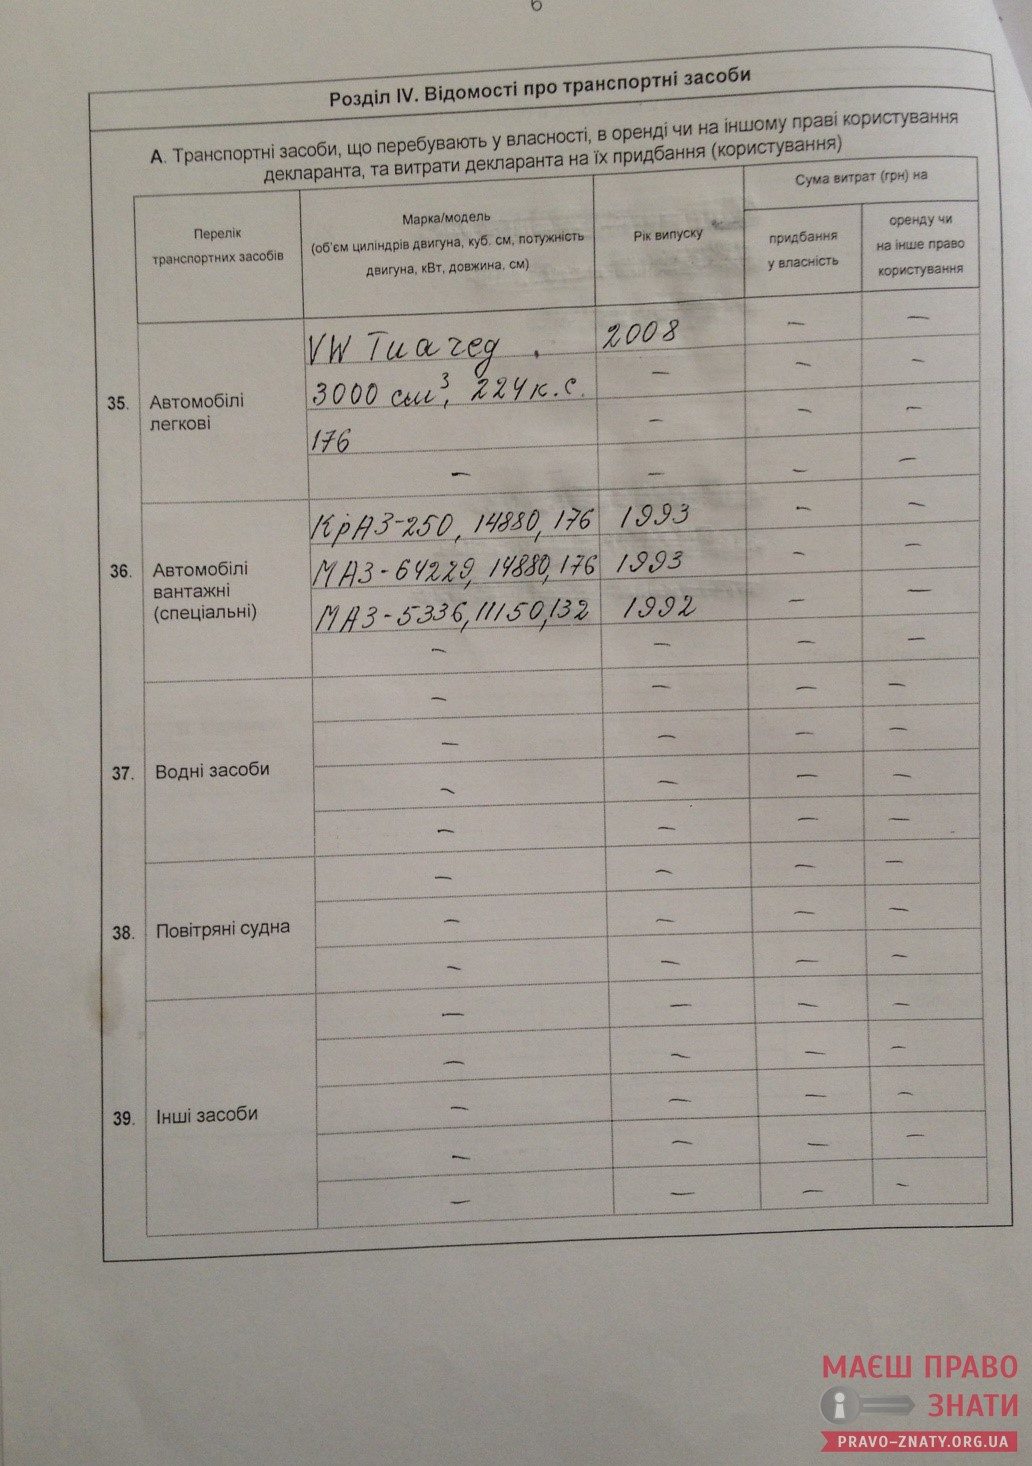 6
Розділ IV. Відомості про транспортні засоби
А. Транспортні засоби, що перебувають у власності, в оренді чи на іншому праві користування
декларанта, та витрати декларанта на їх придбання (користування)
Перелік
транспортних засобів
Марка/модель
(об'єм циліндрів двигуна, куб. см, потужність
двигуна, кВт, довжина, см)
Рік випуску
Сума витрат (грн) на
придбання
у власність
оренду чи
на інше право
користування
35. Автомобілі
легкові
VW Туарег . 2008 – –
3000 см³, 224 к.с. – – –
176 – – –
– – – –
36. Автомобілі
вантажні
(спеціальні)
КрАЗ-250, 14880, 176 1993 – –
МАЗ-64229, 14880, 176 1993 – –
МАЗ-5336, 11150, 132 1992 – –
– – – –
37. Водні засоби
– – – –
– – – –
– – – –
– – – –
38. Повітряні судна
– – – –
– – – –
– – – –
39. Інші засоби
– – – –
– – – –
– – – –
– – – –
– – – –
МАЄШ ПРАВО
ЗНАТИ
PRAVO-ZNATY.ORG.UA